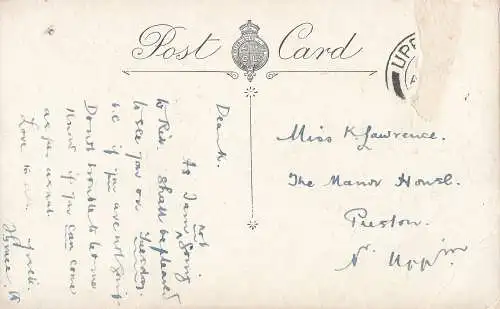 Post Card
UPP
Dear K.
As I am not going
to Rid shall be pleased
to see you on Tuesday
if you are not going
Do not trouble to let me
know if you can come
as per usual
Love to
Miss K. Lawrence.
The Manor House.
Preston.
Nr. Upp'm